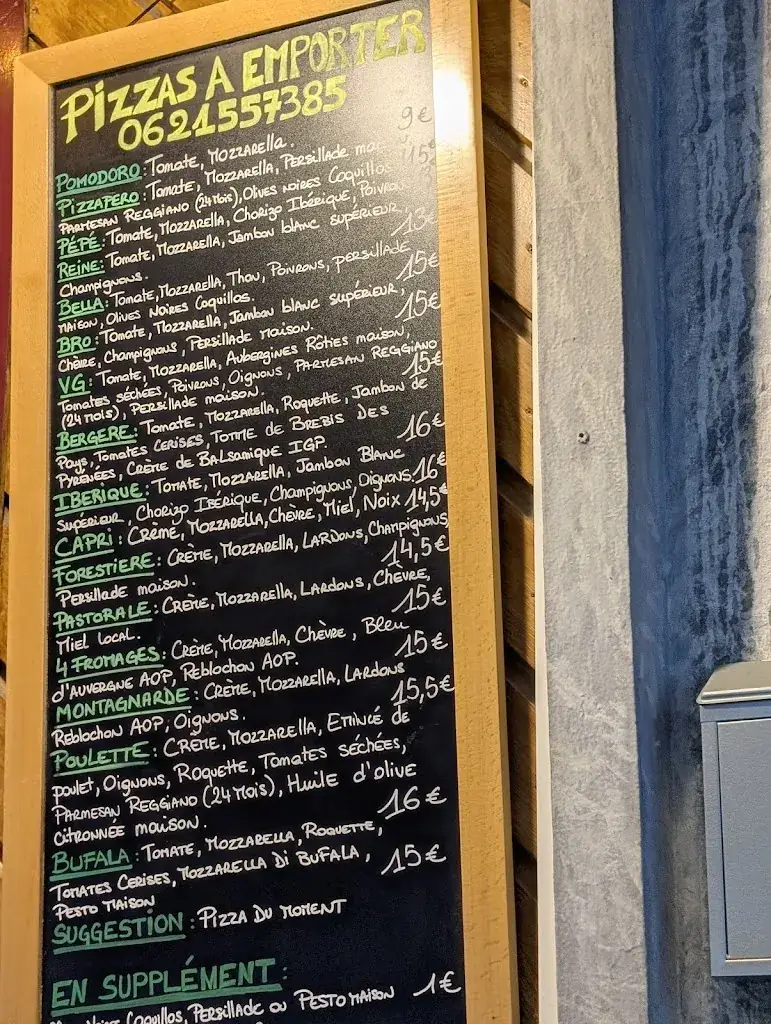 PIZZAS A EMPORTER
0621557385
POMODORO : Tomate, Mozzarella. 9€
PIZZAPERO : Tomate, Mozzarella, Persillade
Parmesan Reggiano (24 Mois), Olives noires Coquillos 15
PÉPÉ : Tomate, Mozzarella, Chorizo Ibérique, Poivrons
REINE : Tomate, Mozzarella, Jambon blanc supérieur,
Champignons. 13€
BELLA : Tomate, Mozzarella, Thon, Poivrons, persillade
maison, Olives Noires Coquillos. 15€
BRO : Tomate, Mozzarella, Jambon blanc supérieur,
Chèvre, Champignons, Persillade maison. 15€
VG : Tomate, Mozzarella, Aubergines Rôties maison,
Tomates séchées, Poivrons, Oignons, Parmesan Reggiano
(24 Mois), Persillade maison. 15€
BERGERE : Tomate, Mozzarella, Roquette, Jambon de
Pays, Tomates Cerises, Tomme de Brebis des
Pyrénées, Crème de Balsamique IGP. 16€
IBERIQUE : Tomate, Mozzarella, Jambon Blanc
Superieur, Chorizo Ibérique, Champignons, Oignons. 16€
CAPRI : Crème, Mozzarella, Chèvre, Miel, Noix 14,5€
FORESTIERE : Crème, Mozzarella, Lardons, Champignons,
Persillade maison. 14,5€
PASTORALE : Crème, Mozzarella, Lardons, Chèvre,
Miel local. 15€
4 FROMAGES : Crème, Mozzarella, Chèvre, Bleu
d'Auvergne AOP, Reblochon AOP. 15€
MONTAGNARDE : Crème, Mozzarella, Lardons
Reblochon AOP, Oignons. 15,5€
POULETTE : Crème, Mozzarella, Emincé de
poulet, Oignons, Roquette, Tomates séchées,
Parmesan Reggiano (24 Mois), Huile d'olive
Citronnée maison. 16€
BUFALA : Tomate, Mozzarella, Roquette,
Tomates Cerises, Mozzarella Di Bufala, 15€
Pesto Maison
SUGGESTION : Pizza Du Moment
EN SUPPLÉMENT :
Coquillos, Persillade ou Pesto maison 1€